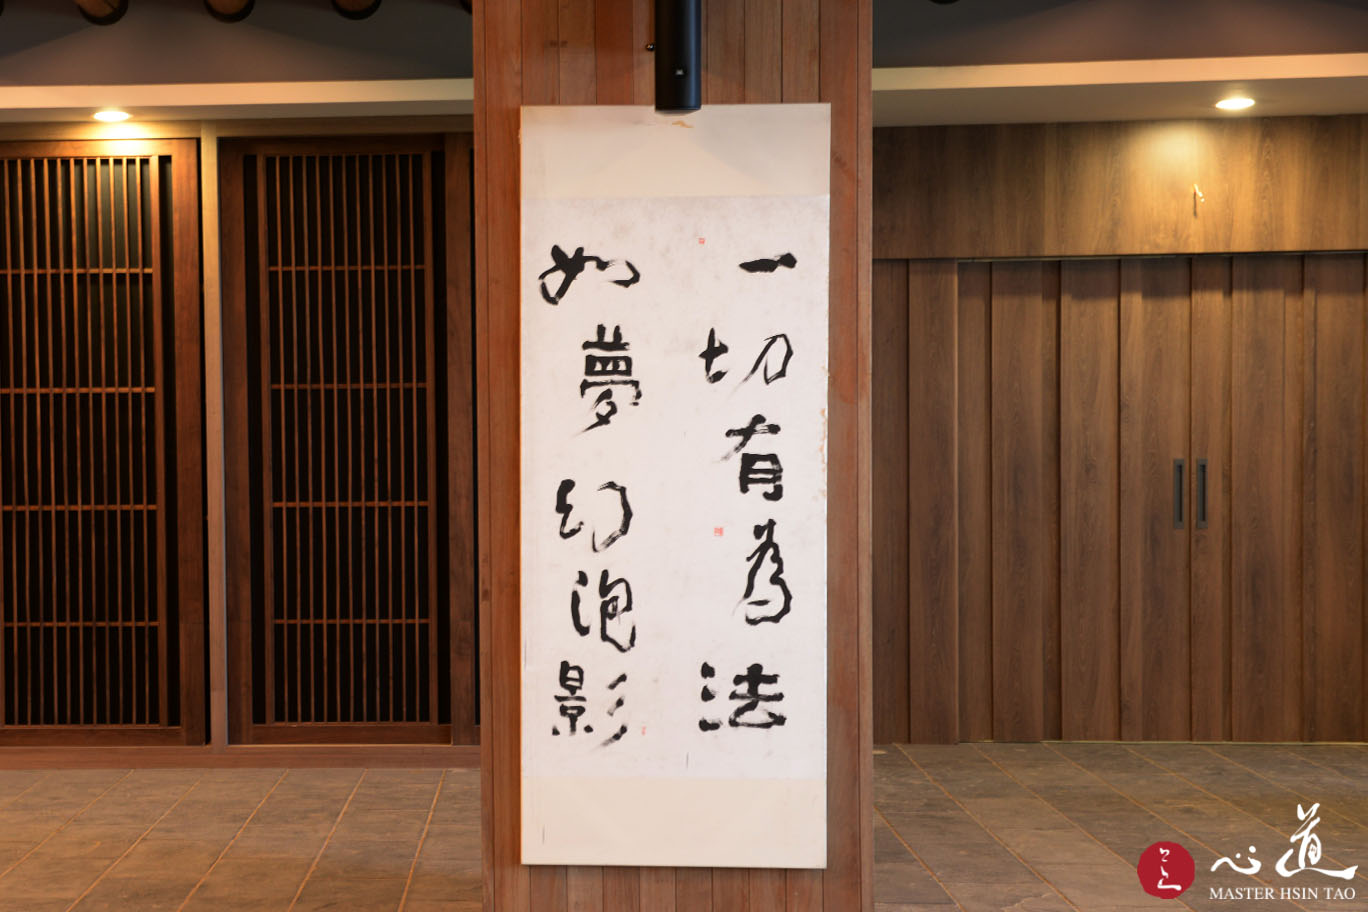 一切有為法
如夢幻泡影
心道
MASTER HSIN TAO